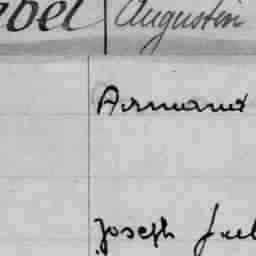 bel Augustin
Armand
Joseph Jul